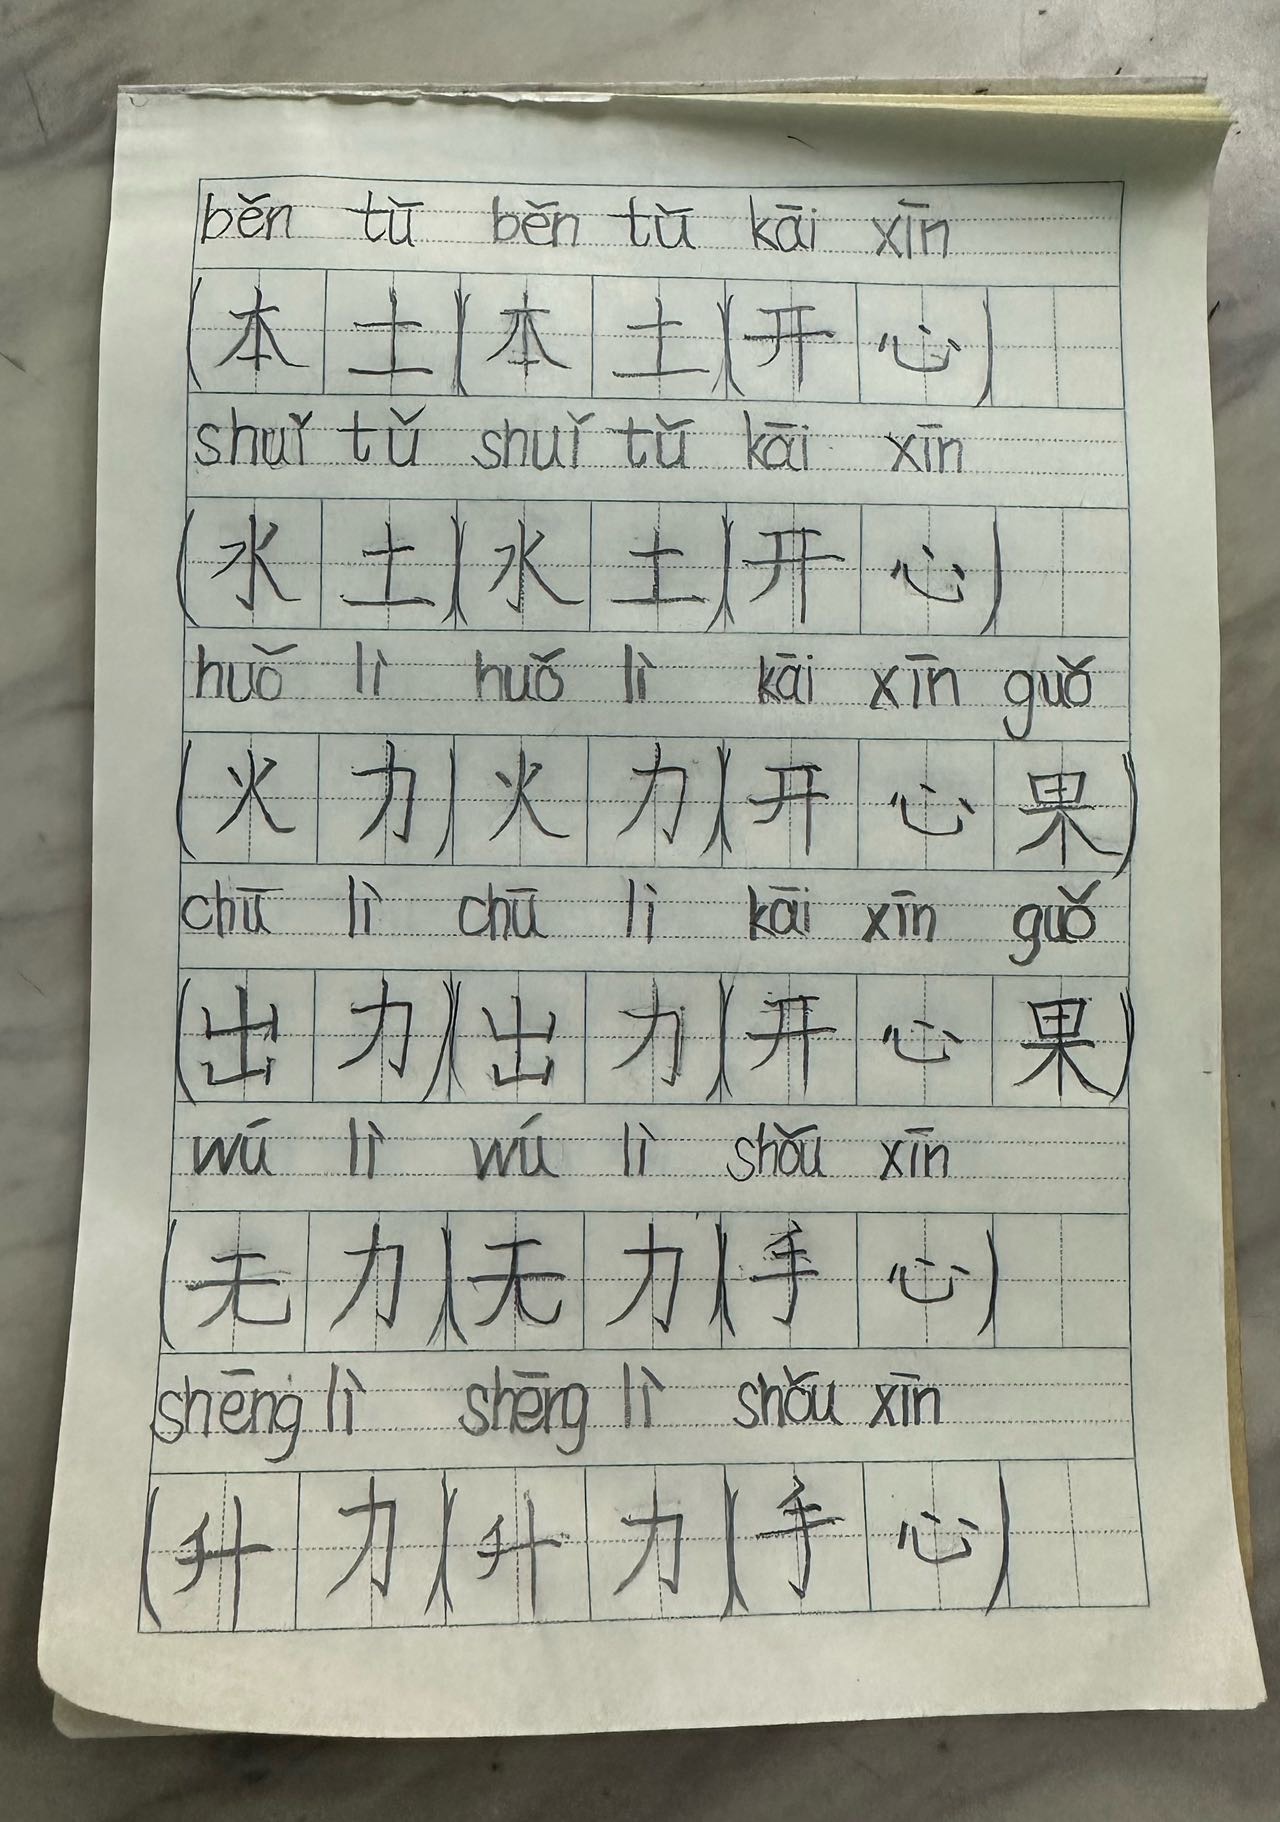 běn tǔ běn tǔ kāi xīn
(本土)(本土)(开心)
shuǐ tǔ shuǐ tǔ kāi xīn
(水土)(水土)(开心)
huǒ lì huǒ lì kāi xīn guǒ
(火力)火力)(开心果)
chū lì chū lì kāi xīn guǒ
(出力)(出力)(开心果)
wú lì wú lì shǒu xīn
(无力)(无力)(手心)
shēng lì shēng lì shǒu xīn
(升力)(升力)(手心)